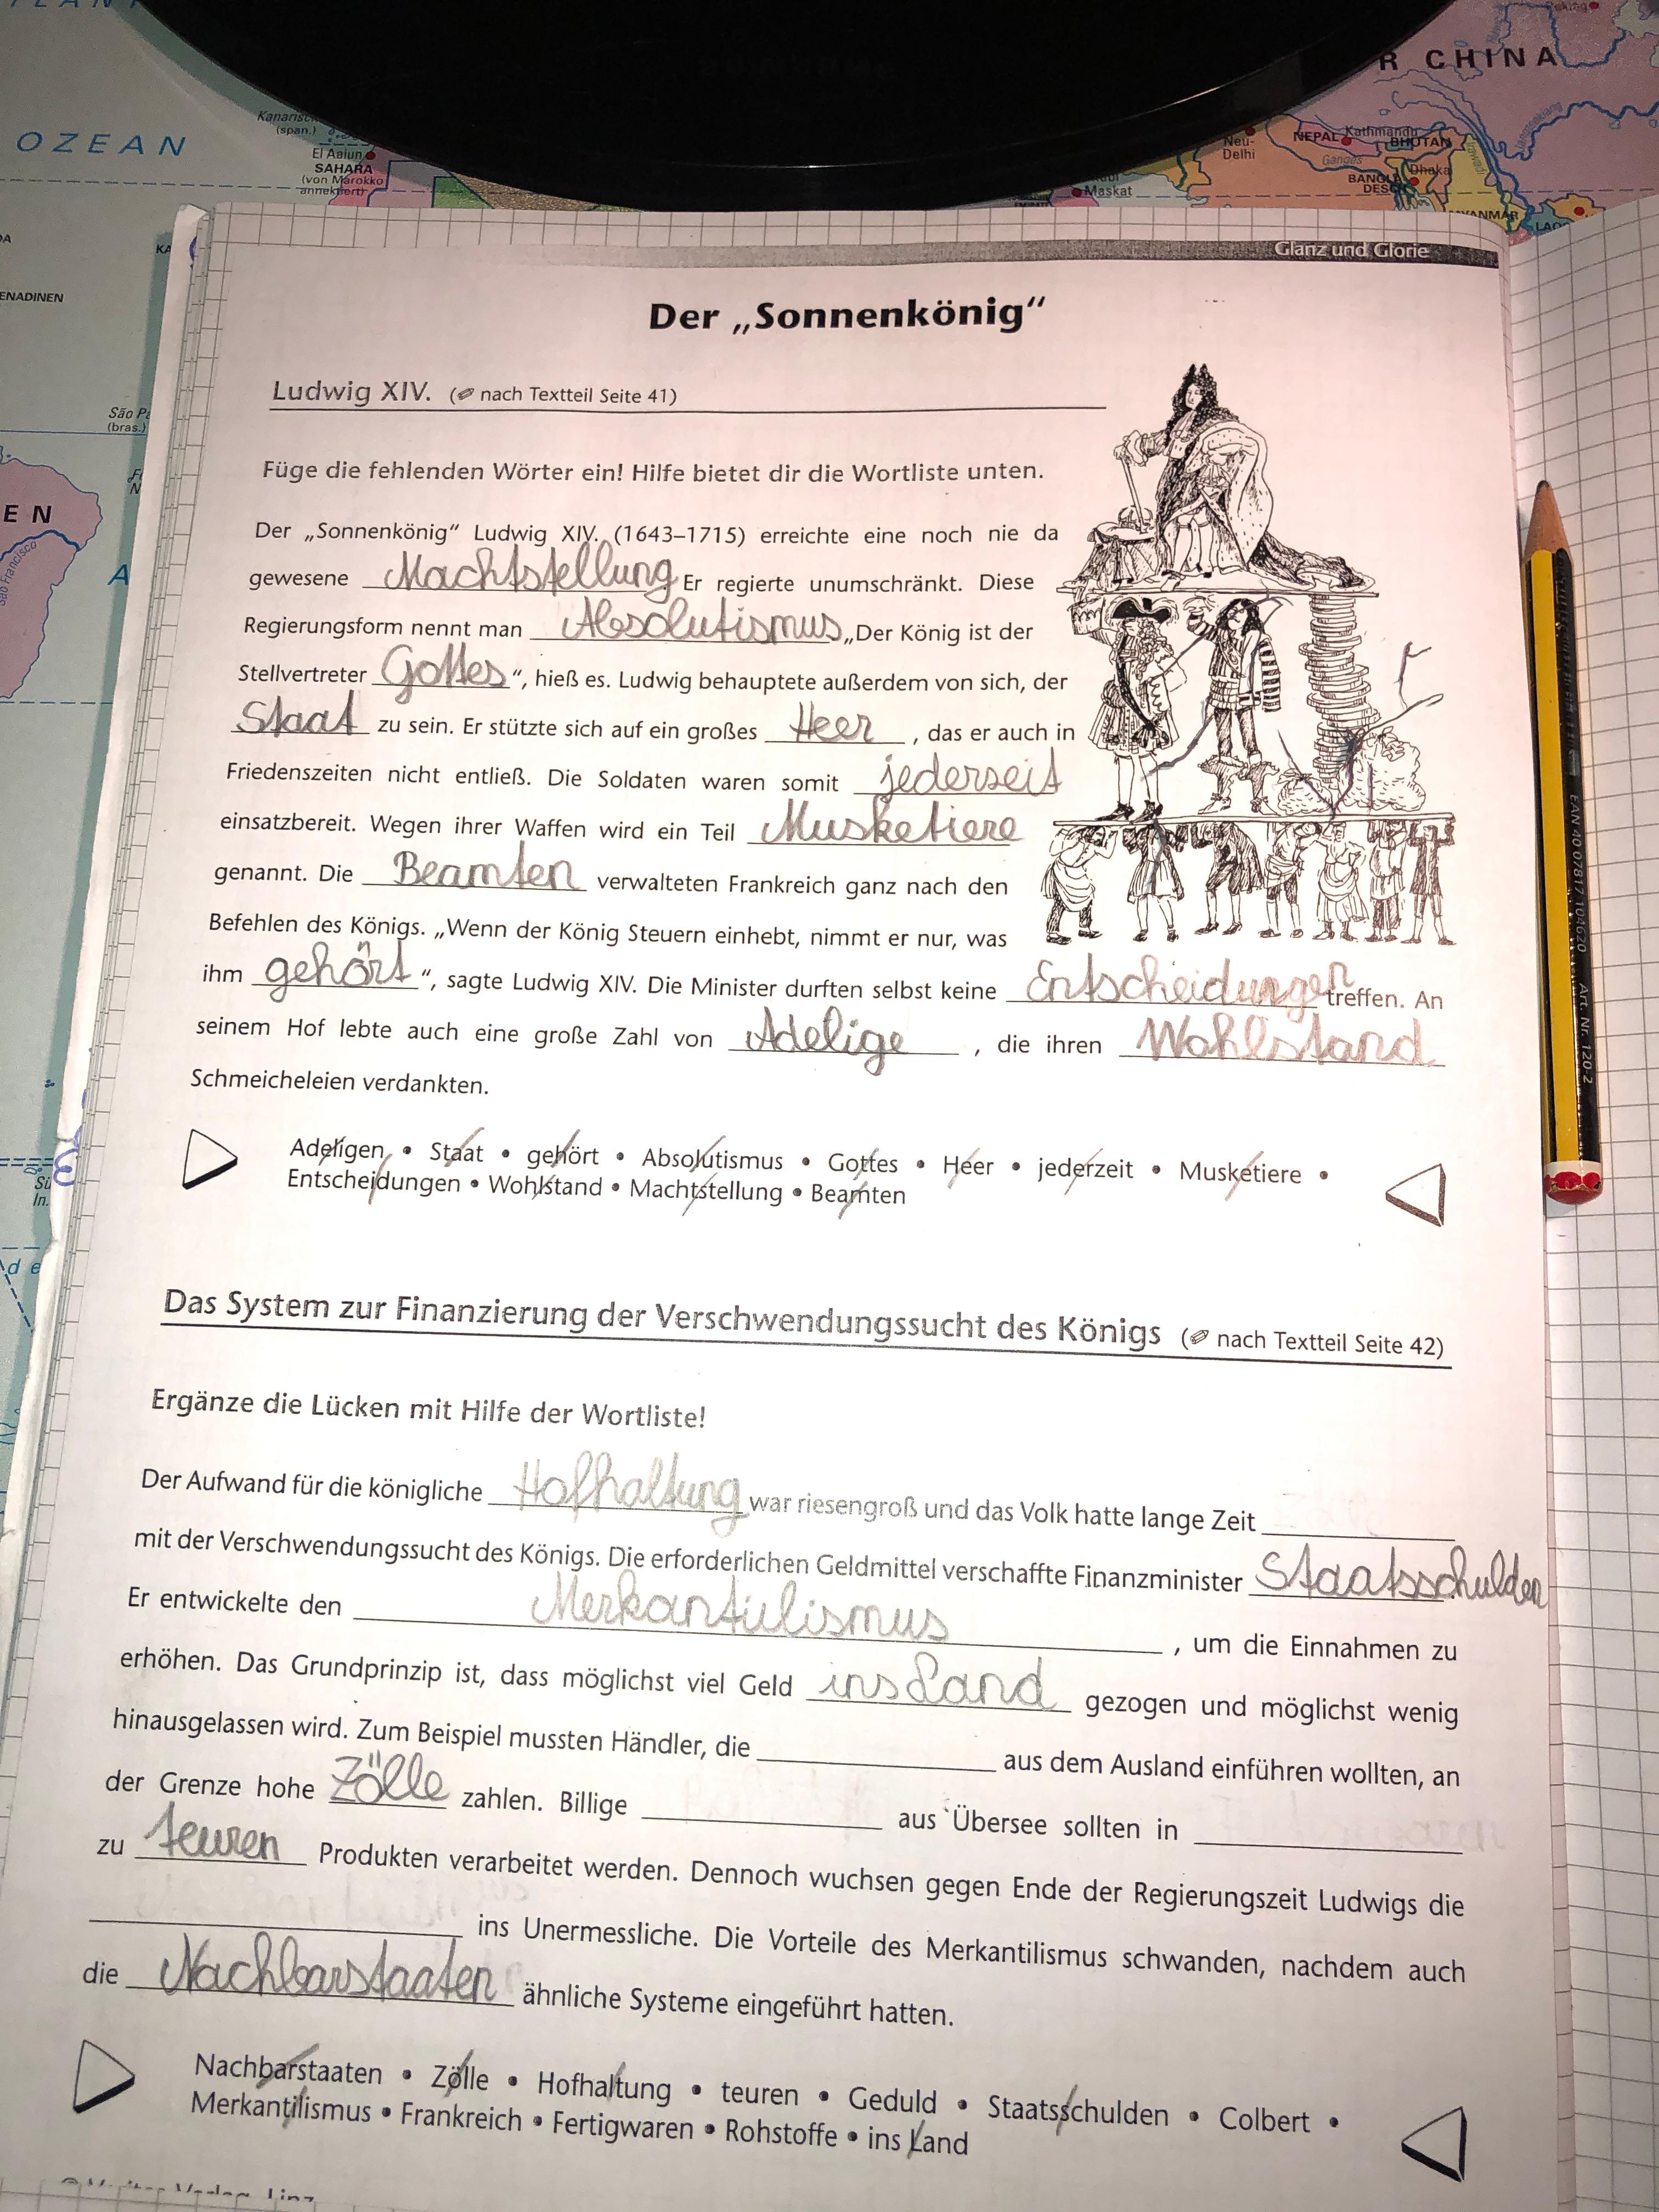 R CHINA
Peking
OZEAN
(span.)
El Aaiun
SAHARA
(von Marokko
annektiert)
Neu-
Delhi
NEPAL
Kathmandu
BHUTAN
Ganges
Dhaka
BANGLA
DESCH
Maskat
ENADINEN
São Pa
(bras.)
EN
Francisco
A
Glanz und Glorie
Der „Sonnenkönig“
Ludwig XIV. (nach Textteil Seite 41)
Füge die fehlenden Wörter ein! Hilfe bietet dir die Wortliste unten.
Der „Sonnenkönig“ Ludwig XIV. (1643–1715) erreichte eine noch nie da
gewesene Machtstellung Er regierte unumschränkt. Diese
Regierungsform nennt man Absolutismus „Der König ist der
Stellvertreter Gottes“, hieß es. Ludwig behauptete außerdem von sich, der
Staat zu sein. Er stützte sich auf ein großes Heer, das er auch in
Friedenszeiten nicht entließ. Die Soldaten waren somit jederseit
einsatzbereit. Wegen ihrer Waffen wird ein Teil Musketiere
genannt. Die Beamten verwalteten Frankreich ganz nach den
Befehlen des Königs. „Wenn der König Steuern einhebt, nimmt er nur, was
ihm gehört“, sagte Ludwig XIV. Die Minister durften selbst keine Entscheidungen treffen. An
seinem Hof lebte auch eine große Zahl von Adelige, die ihren Wohlstand
Schmeicheleien verdankten.
Adeligen • Staat • gehört • Absolutismus • Gottes • Heer • jederzeit • Musketiere •
Entscheidungen • Wohlstand • Machtstellung • Beamten
Das System zur Finanzierung der Verschwendungssucht des Königs (nach Textteil Seite 42)
Ergänze die Lücken mit Hilfe der Wortliste!
Der Aufwand für die königliche Hofhaltung war riesengroß und das Volk hatte lange Zeit
mit der Verschwendungssucht des Königs. Die erforderlichen Geldmittel verschaffte Finanzminister Staatsschulden
Er entwickelte den Merkantilismus, um die Einnahmen zu
erhöhen. Das Grundprinzip ist, dass möglichst viel Geld ins Land gezogen und möglichst wenig
hinausgelassen wird. Zum Beispiel mussten Händler, die aus dem Ausland einführen wollten, an
der Grenze hohe Zölle zahlen. Billige aus Übersee sollten in
zu teuren Produkten verarbeitet werden. Dennoch wuchsen gegen Ende der Regierungszeit Ludwigs die
ins Unermessliche. Die Vorteile des Merkantilismus schwanden, nachdem auch
die Nachbarstaaten ähnliche Systeme eingeführt hatten.
Nachbarstaaten • Zölle • Hofhaltung • teuren • Geduld • Staatsschulden • Colbert •
Merkantilismus • Frankreich • Fertigwaren • Rohstoffe • ins Land
EAN 40 07817 104620 Art. Nr. 120-2